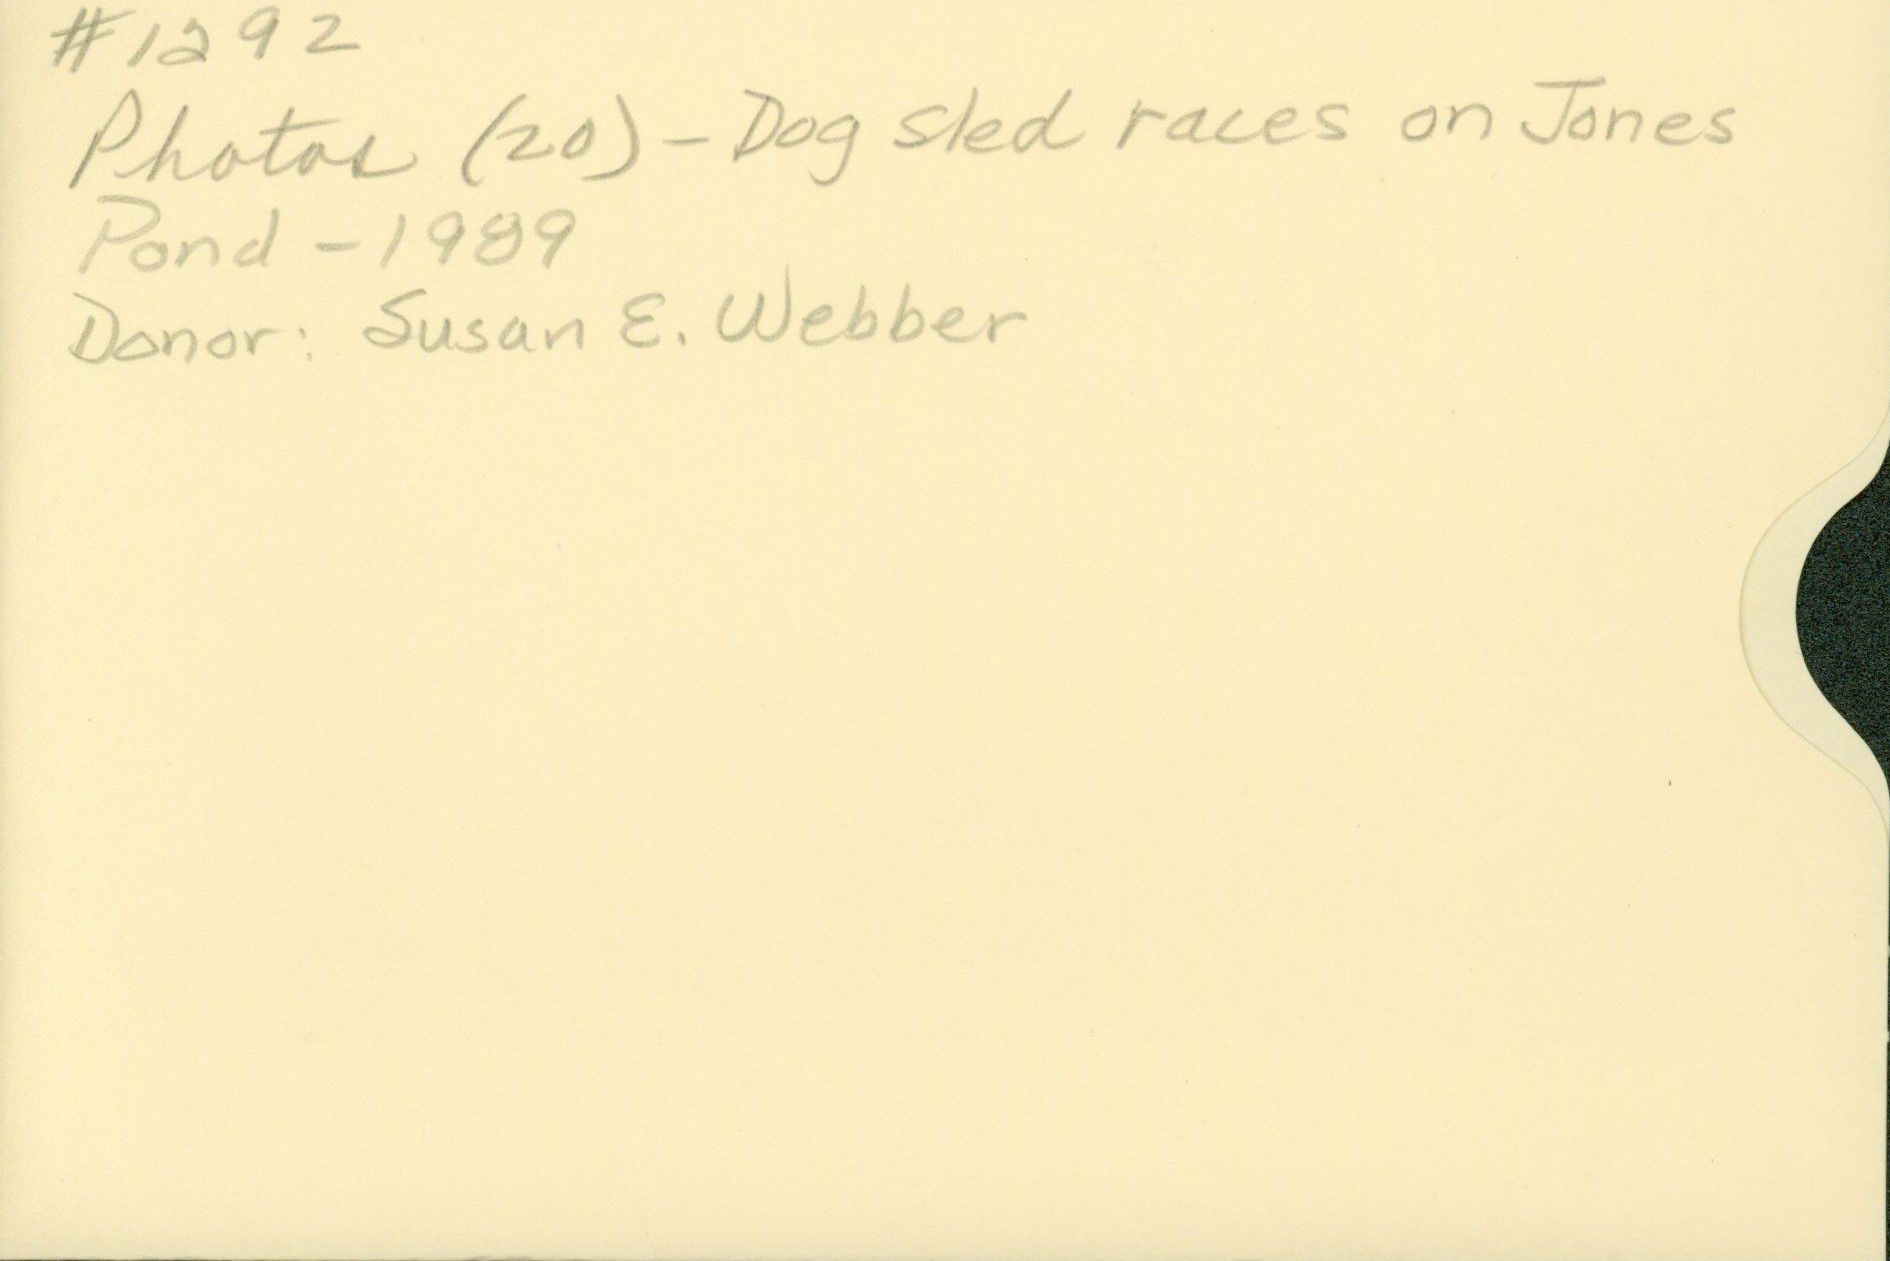 #1292
Photos (20) - Dog sled races on Jones
Pond - 1989
Donor: Susan E. Webber